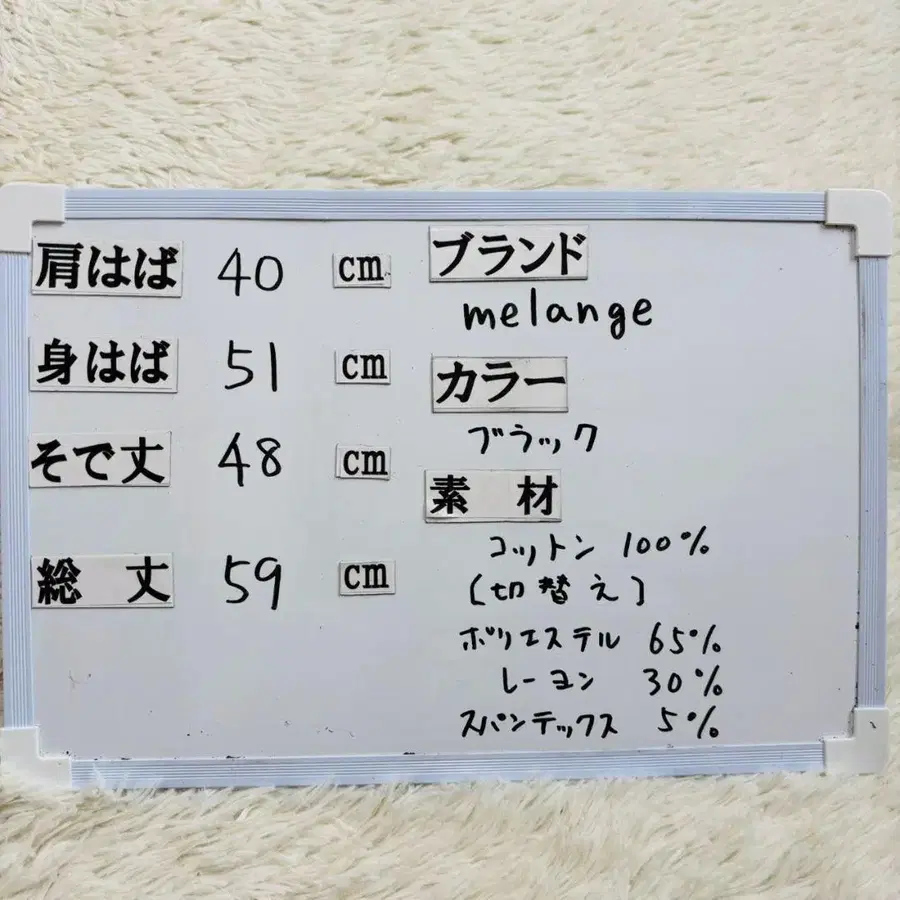 肩はば 40 cm
身はば 51 cm
そで丈 48 cm
総 丈 59 cm
ブランド
melange
カラー
ブラック
素 材
コットン 100%
[切替え]
ポリエステル 65%
レーヨン 30%
スパンテックス 5%